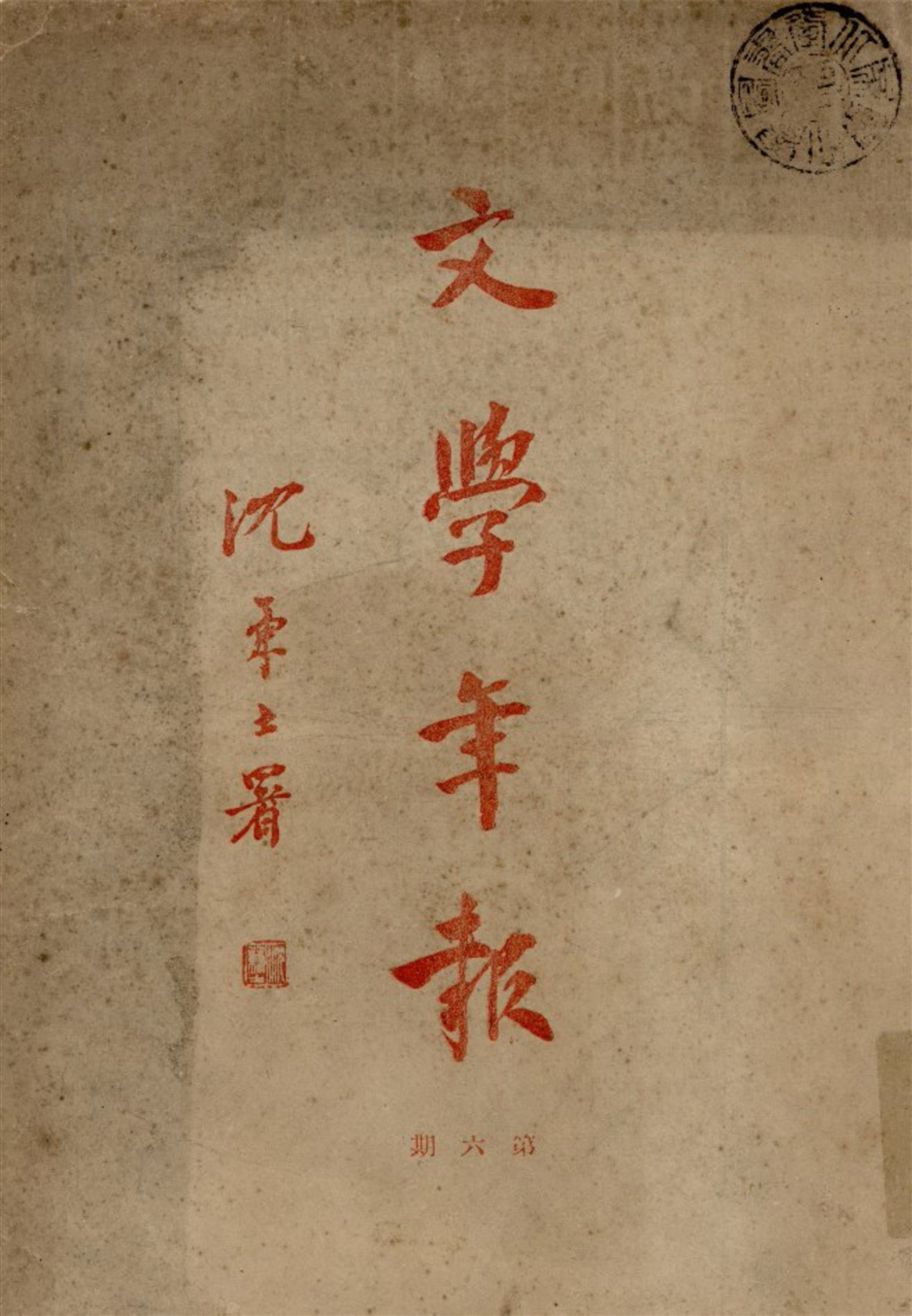 文學年報
沈兼士署
第六期